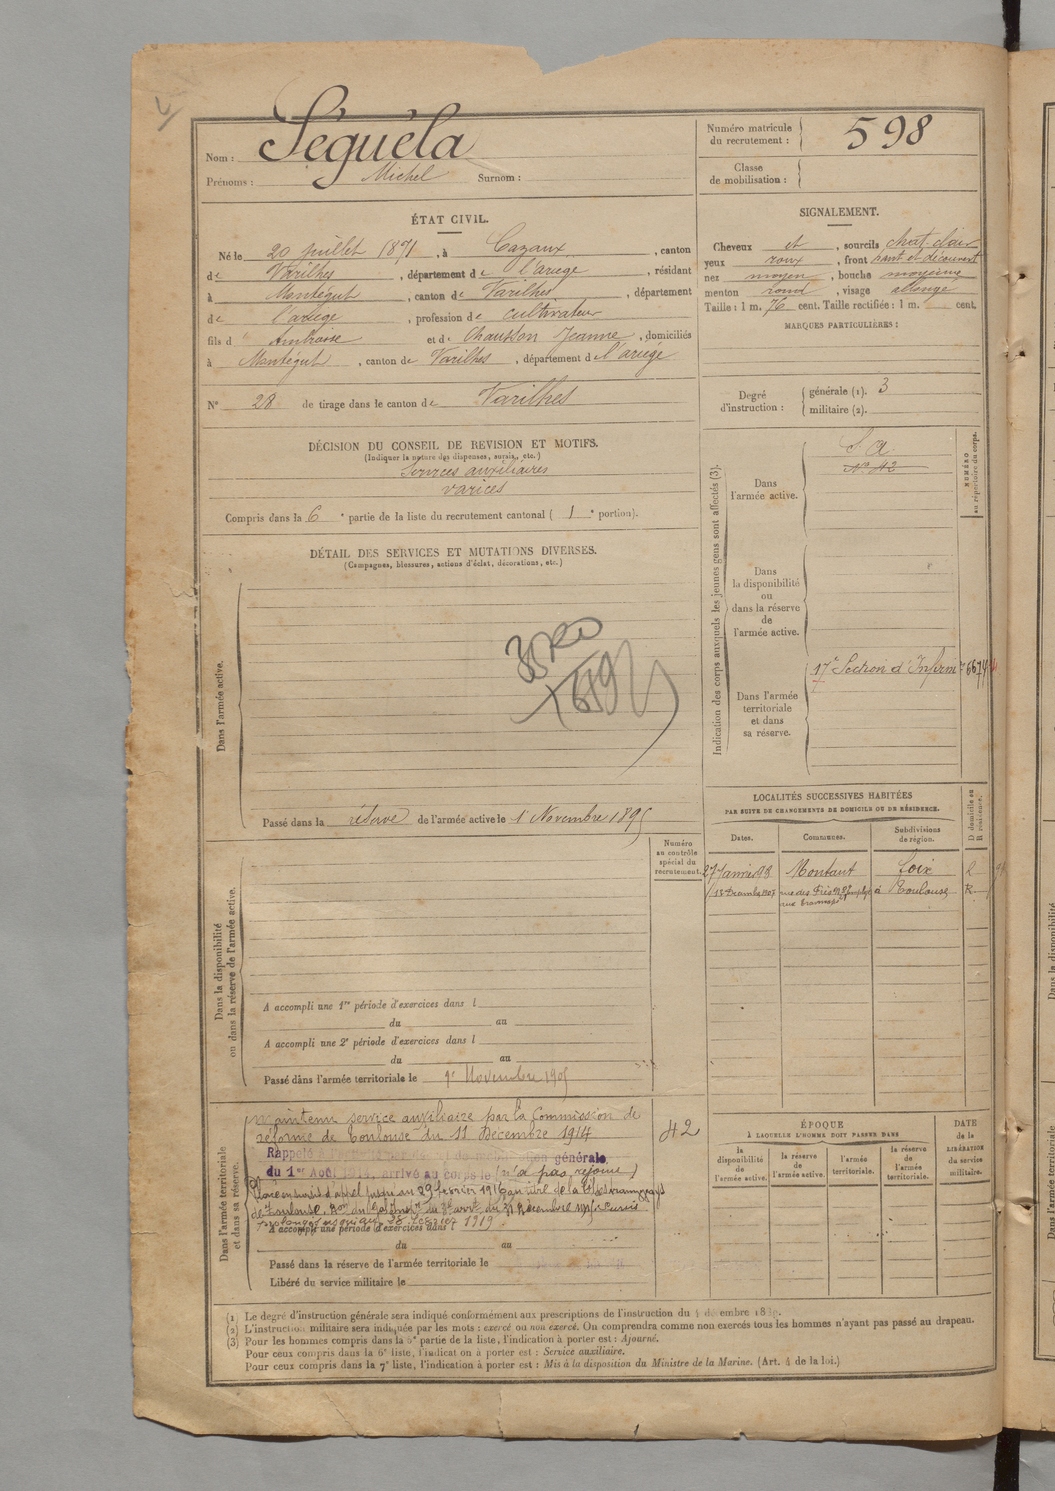 Nom : Séguéla
Prénoms : Michel Surnom :
Numéro matricule du recrutement : 598
Classe de mobilisation :
ÉTAT CIVIL.
Né le 20 juillet 1871, à Cazaux, canton
de Varilhes, département de l'ariege, résidant
à Montégut, canton de Varilhes, département
de l'ariege, profession de cultivateur
fils d' Ambroise et de Chausson Jeanne, domiciliés
à Montégut, canton de Varilhes, département de l'ariege
N° 28 de tirage dans le canton de Varilhes
SIGNALEMENT.
Cheveux et, sourcils chat. clair
yeux roux, front haut et découvert
nez moyen, bouche moyenne
menton rond, visage allongé
Taille : 1 m. 76 cent. Taille rectifiée : 1 m. cent.
MARQUES PARTICULIÈRES :
Degré d'instruction : générale (1). 3
militaire (2).
DÉCISION DU CONSEIL DE REVISION ET MOTIFS.
(Indiquer la nature des dispenses, sursis, etc.)
Services auxiliaires
varices
Compris dans la 6e partie de la liste du recrutement cantonal ( 1e portion).
DÉTAIL DES SERVICES ET MUTATIONS DIVERSES.
(Campagnes, blessures, actions d'éclat, décorations, etc.)
Dans l'armée active.
Passé dans la réserve de l'armée active le 1 Novembre 1895
Indication des corps auxquels les jeunes gens sont affectés (3).
NUMÉRO au répertoire du corps.
Dans l'armée active.
S A
N° 42
Dans la disponibilité ou dans la réserve de l'armée active.
Dans l'armée territoriale et dans sa réserve.
17e Section d'Infirm
LOCALITÉS SUCCESSIVES HABITÉES
PAR SUITE DE CHANGEMENTS DE DOMICILE OU DE RÉSIDENCE.
D domicile ou R résidence.
Dates. Communes. Subdivisions de région.
27 Janvier 98 Montaut Foix
13 Décembre 1907 rue des à Toulouse R
Numéro au contrôle spécial du recrutement.
Dans la disponibilité ou dans la réserve de l'armée active.
A accompli une 1re période d'exercices dans l
du au
A accompli une 2e période d'exercices dans l
du au
Passé dans l'armée territoriale le 1e Novembre 1905
Dans l'armée territoriale et dans sa réserve.
Maintenu service auxiliaire par la Commission de
réforme de Toulouse du 11 Décembre 1914
42
Rappelé à l'activité générale
du 1er Août arrivé au corps le (n'a pas rejoint)
Placé en sursis d'appel jusqu'au 29 février 1916 au titre de la
de Toulouse, du 31 Décembre Sursis
prolongé jusqu'au 1919
A accompli une période d'exercices dans l
du au
Passé dans la réserve de l'armée territoriale le
Libéré du service militaire le
ÉPOQUE
À LAQUELLE L'HOMME DOIT PASSER DANS
la disponibilité de l'armée active. la réserve de l'armée active. l'armée territoriale. la réserve de l'armée territoriale.
DATE de la LIBÉRATION du service militaire.
(1) Le degré d'instruction générale sera indiqué conformément aux prescriptions de l'instruction du
(2) L'instruction militaire sera indiquée par les mots : exercé ou non exercé. On comprendra comme non exercés tous les hommes n'ayant pas passé au drapeau.
(3) Pour les hommes compris dans la 5e partie de la liste, l'indication à porter est : Ajourné.
Pour ceux compris dans la 6e liste, l'indication à porter est : Service auxiliaire.
Pour ceux compris dans la 7e liste, l'indication à porter est : Mis à la disposition du Ministre de la Marine. (Art. 4 de la loi.)